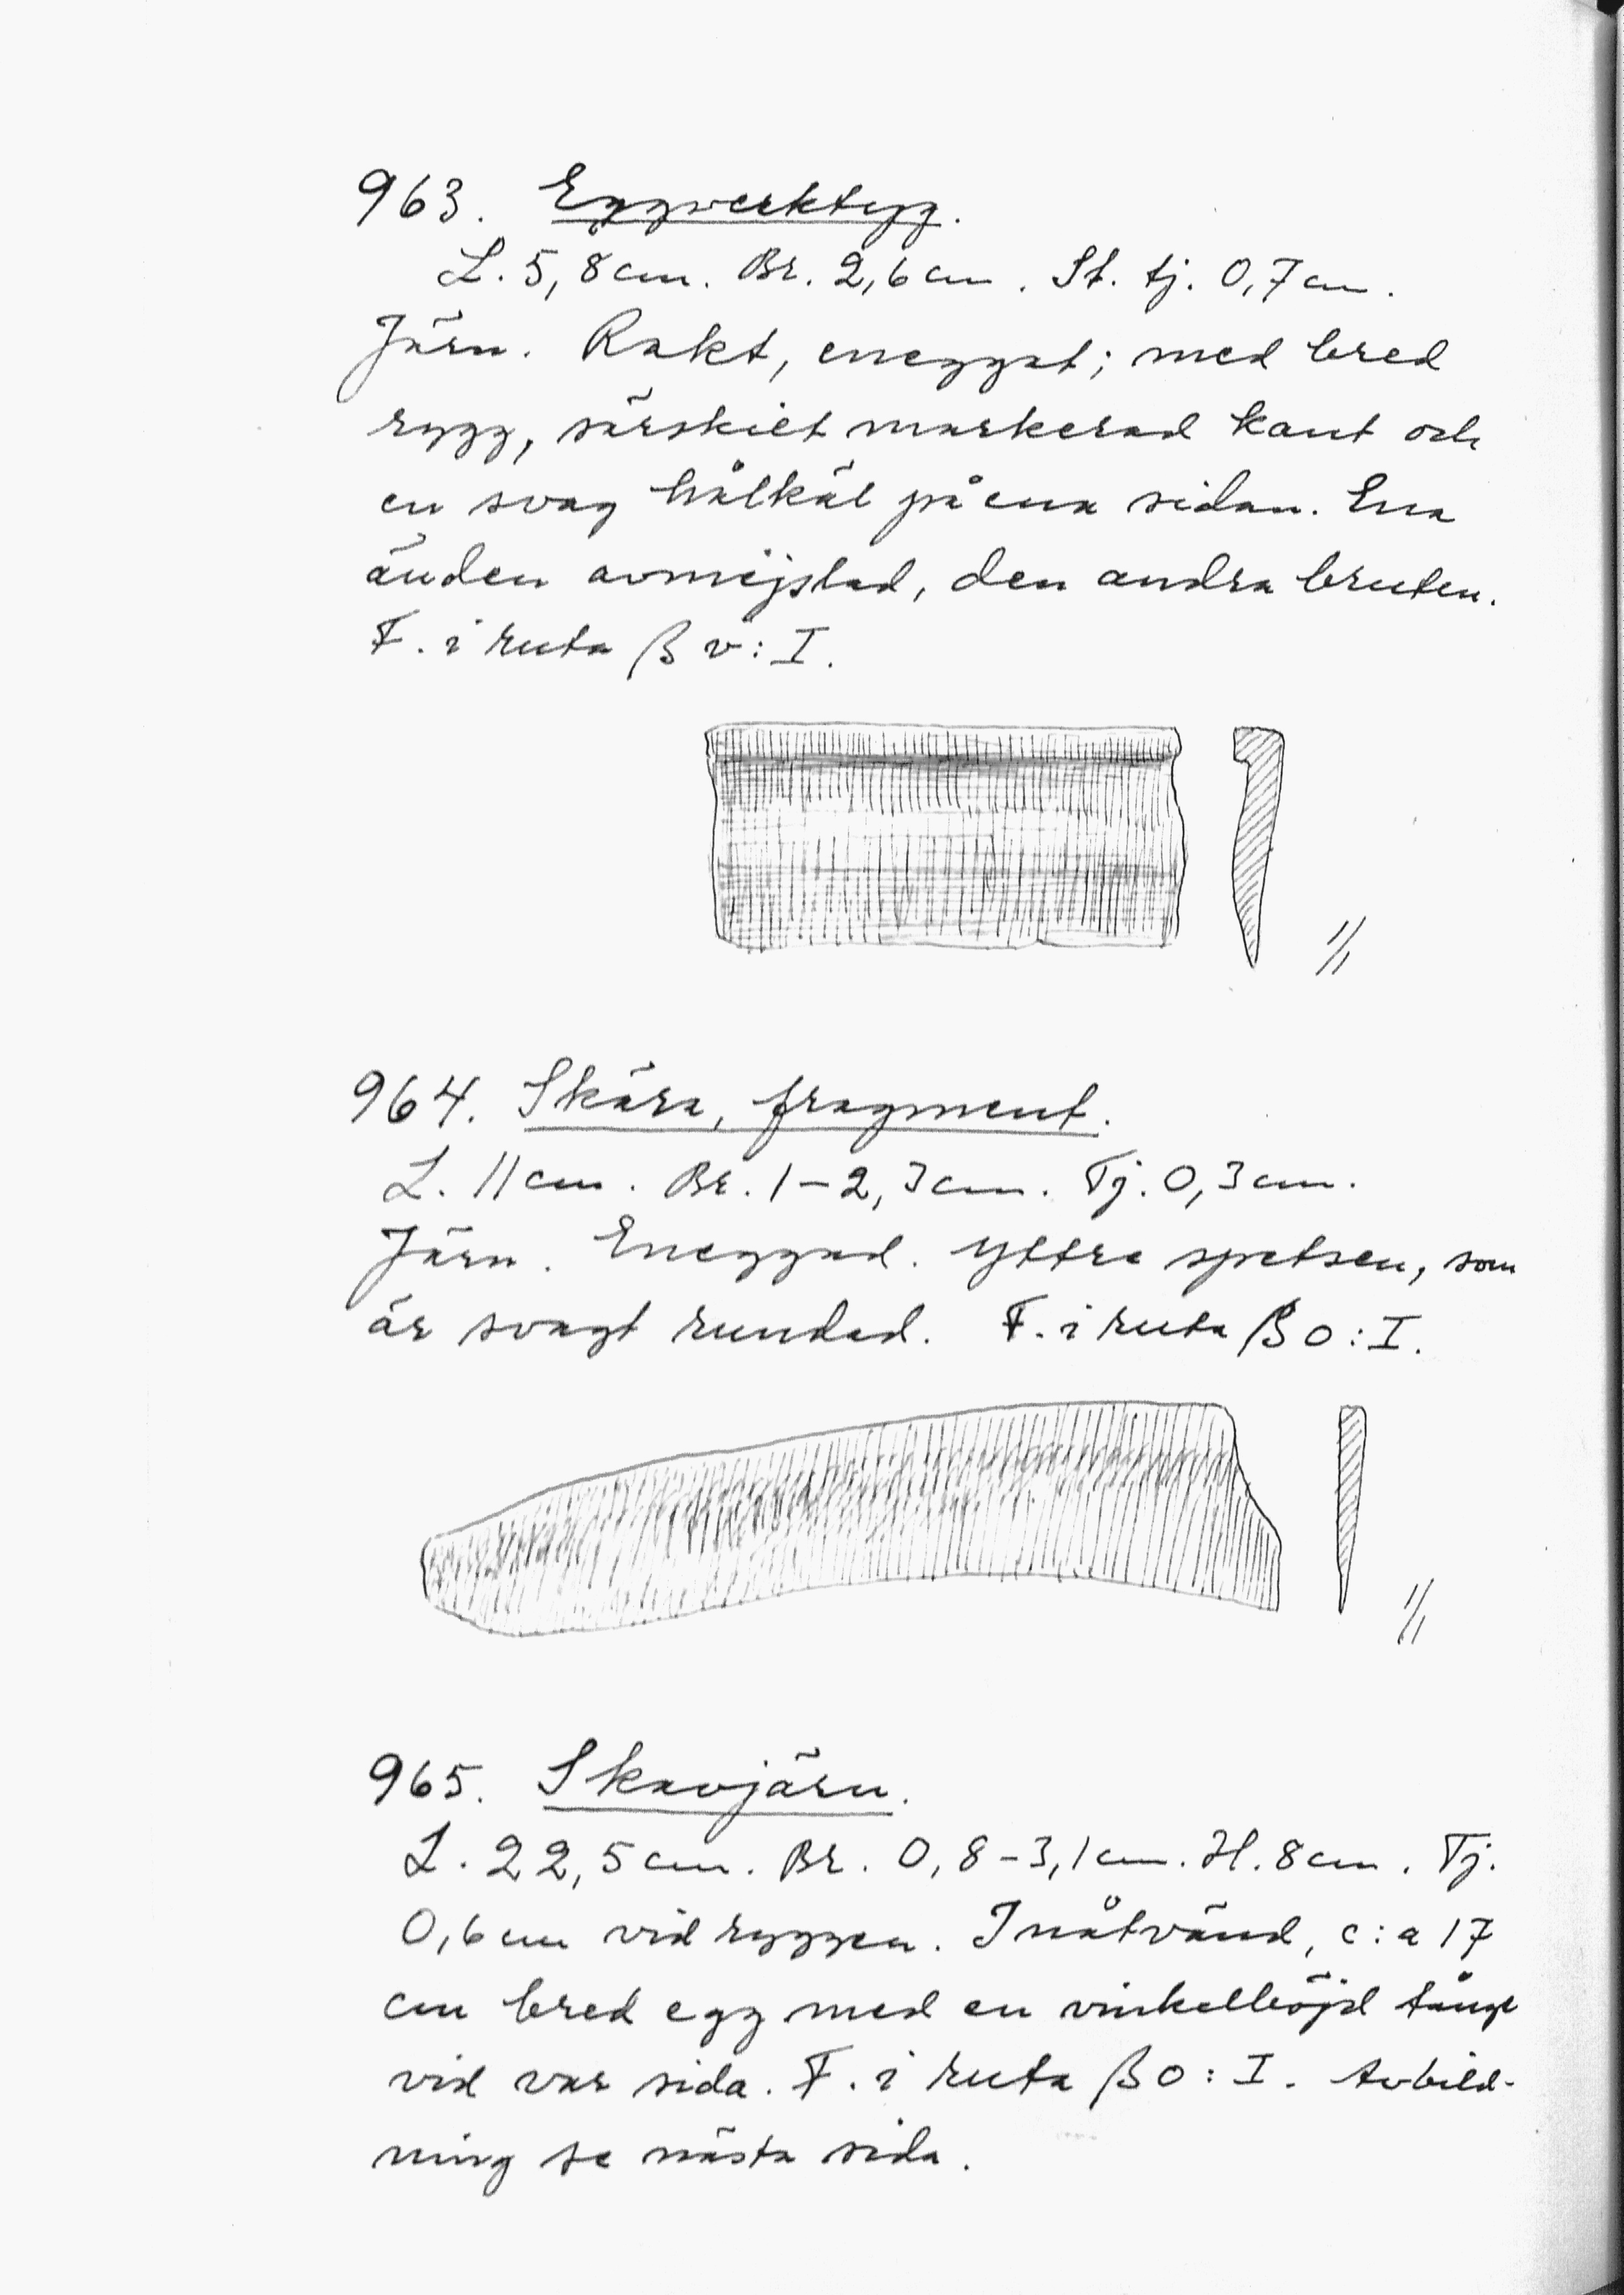 963. Eggverktyg.
L. 5,8 cm. Br. 2,6 cm. St. tj. 0,7 cm.
Järn. Rakt, eneggat; med bred
rygg, särskilt markerad kant och
en svag hålkäl på ena sidan. Ena
änden avmejslad, den andra bruten.
F. i ruta β v: I.
1/1
964. Skära, fragment.
L. 11 cm. Br. 1-2,3 cm. Tj. 0,3 cm.
Järn. Eneggad. Yttre spetsen, som
är svagt rundad. F. i ruta β o: I.
1/1
965. Skavjärn.
L. 22,5 cm. Br. 0,8-3,1 cm. H. 8 cm. Tj.
0,6 cm vid ryggen. Inåtvänd, c:a 17
cm bred egg med en vinkelböjd tånge
vid var sida. F. i ruta β o: I. Avbild-
ning se nästa sida.